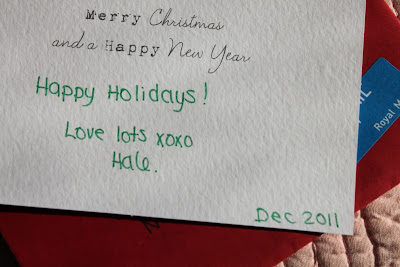 Merry Christmas
and a Happy New Year
Happy Holidays!
Love lots xoxo
Hale.
Dec 2011
Royal M